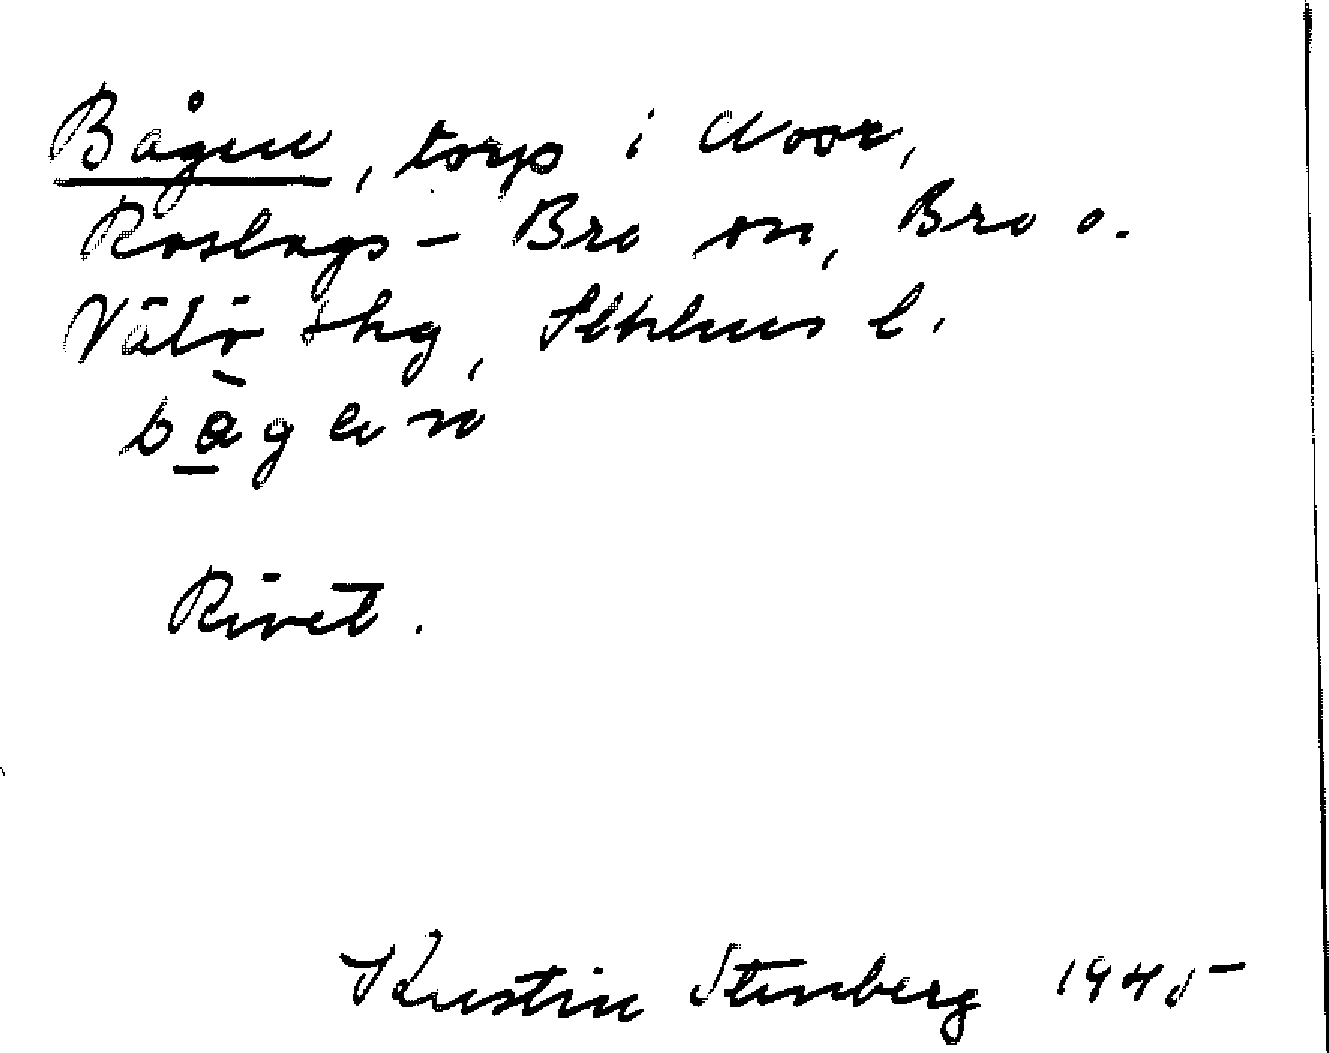 Bågen, torp i Noor,
Roslags-Bro sn, Bro o.
Vätö skg, Sthlms l.
bågen
Rivet.
Kerstin Stenberg 1945